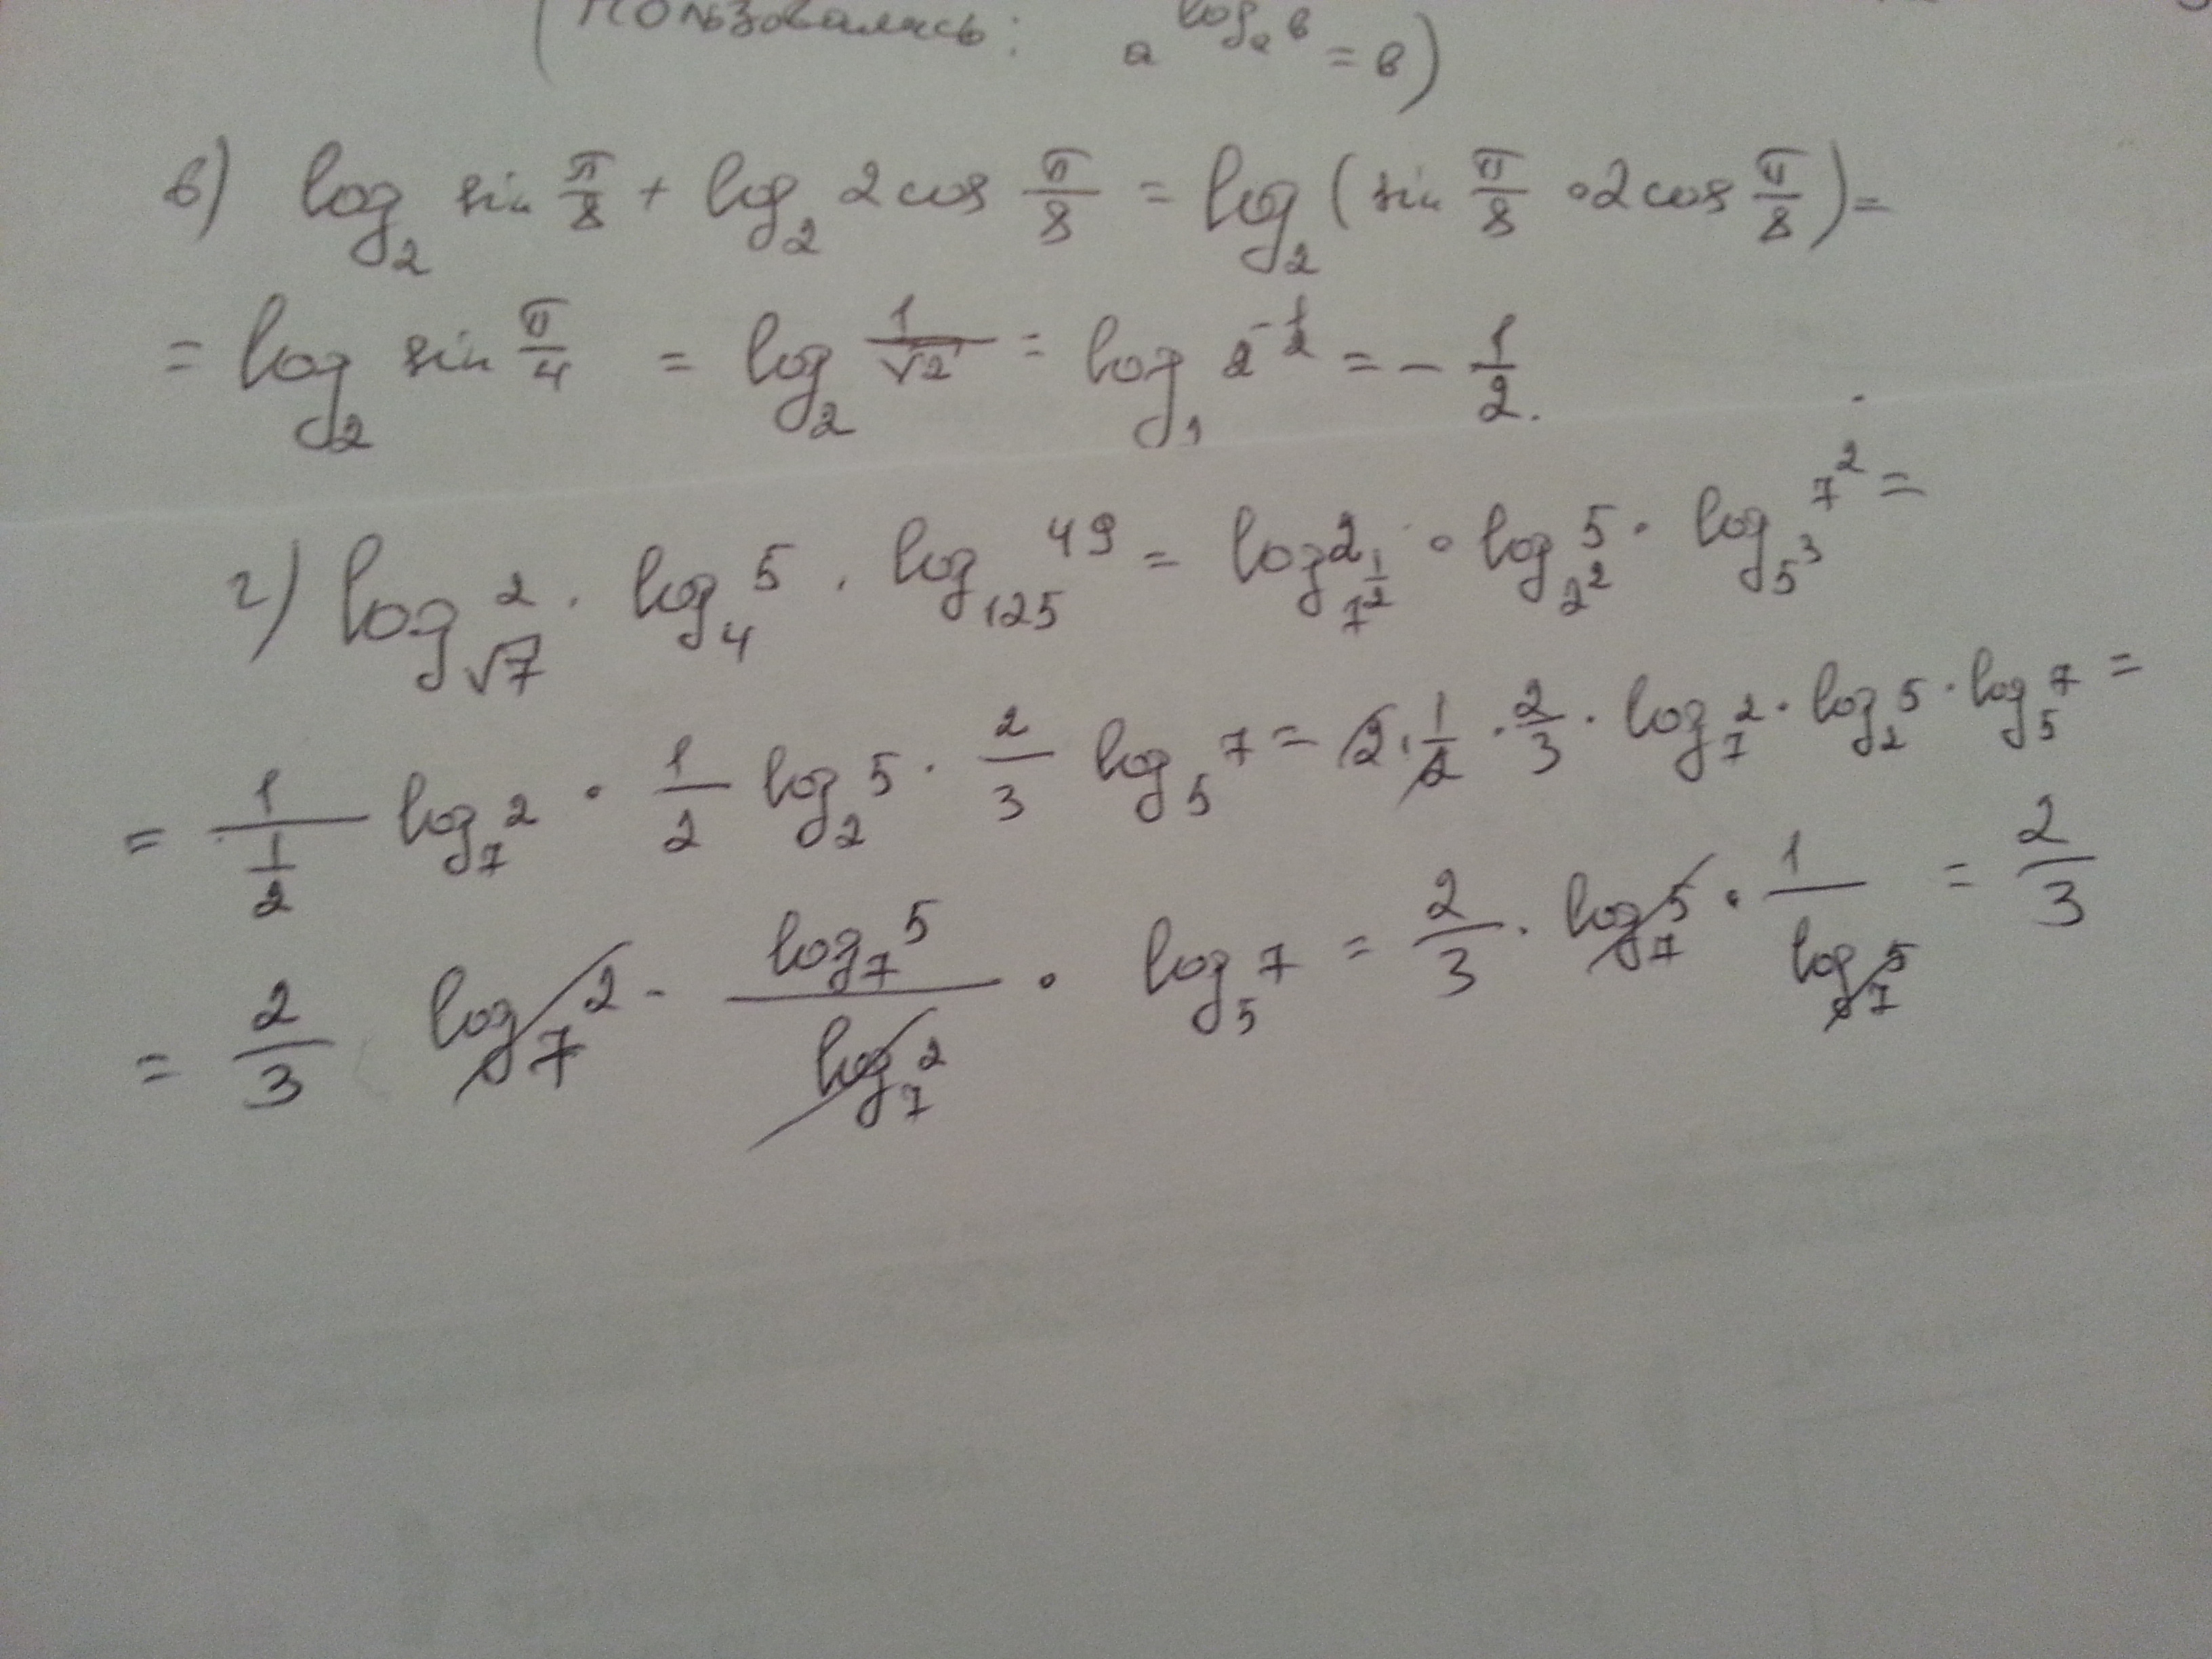 (Пользовалась: a^{log_a в} = в)
в) log_2 sin π/8 + log_2 2cos π/8 = log_2 (sin π/8 · 2cos π/8) =
= log_2 sin π/4 = log_2 1/√2 = log_1 2^{-1/2} = - 1/2.
г) log_{√7} 2 · log_4 5 · log_{125} 49 = log_{7^{1/2}} 2 · log_{2^2} 5 · log_{5^3} 7^2 =
= 1/(1/2) log_7 2 · 1/2 log_2 5 · 2/3 log_5 7 = 2 · 1/2 · 2/3 · log_7 2 · log_2 5 · log_5 7 =
= 2/3 log_7 2 · (log_7 5)/(log_7 2) · log_5 7 = 2/3 · log_7 5 · 1/(log_7 5) = 2/3